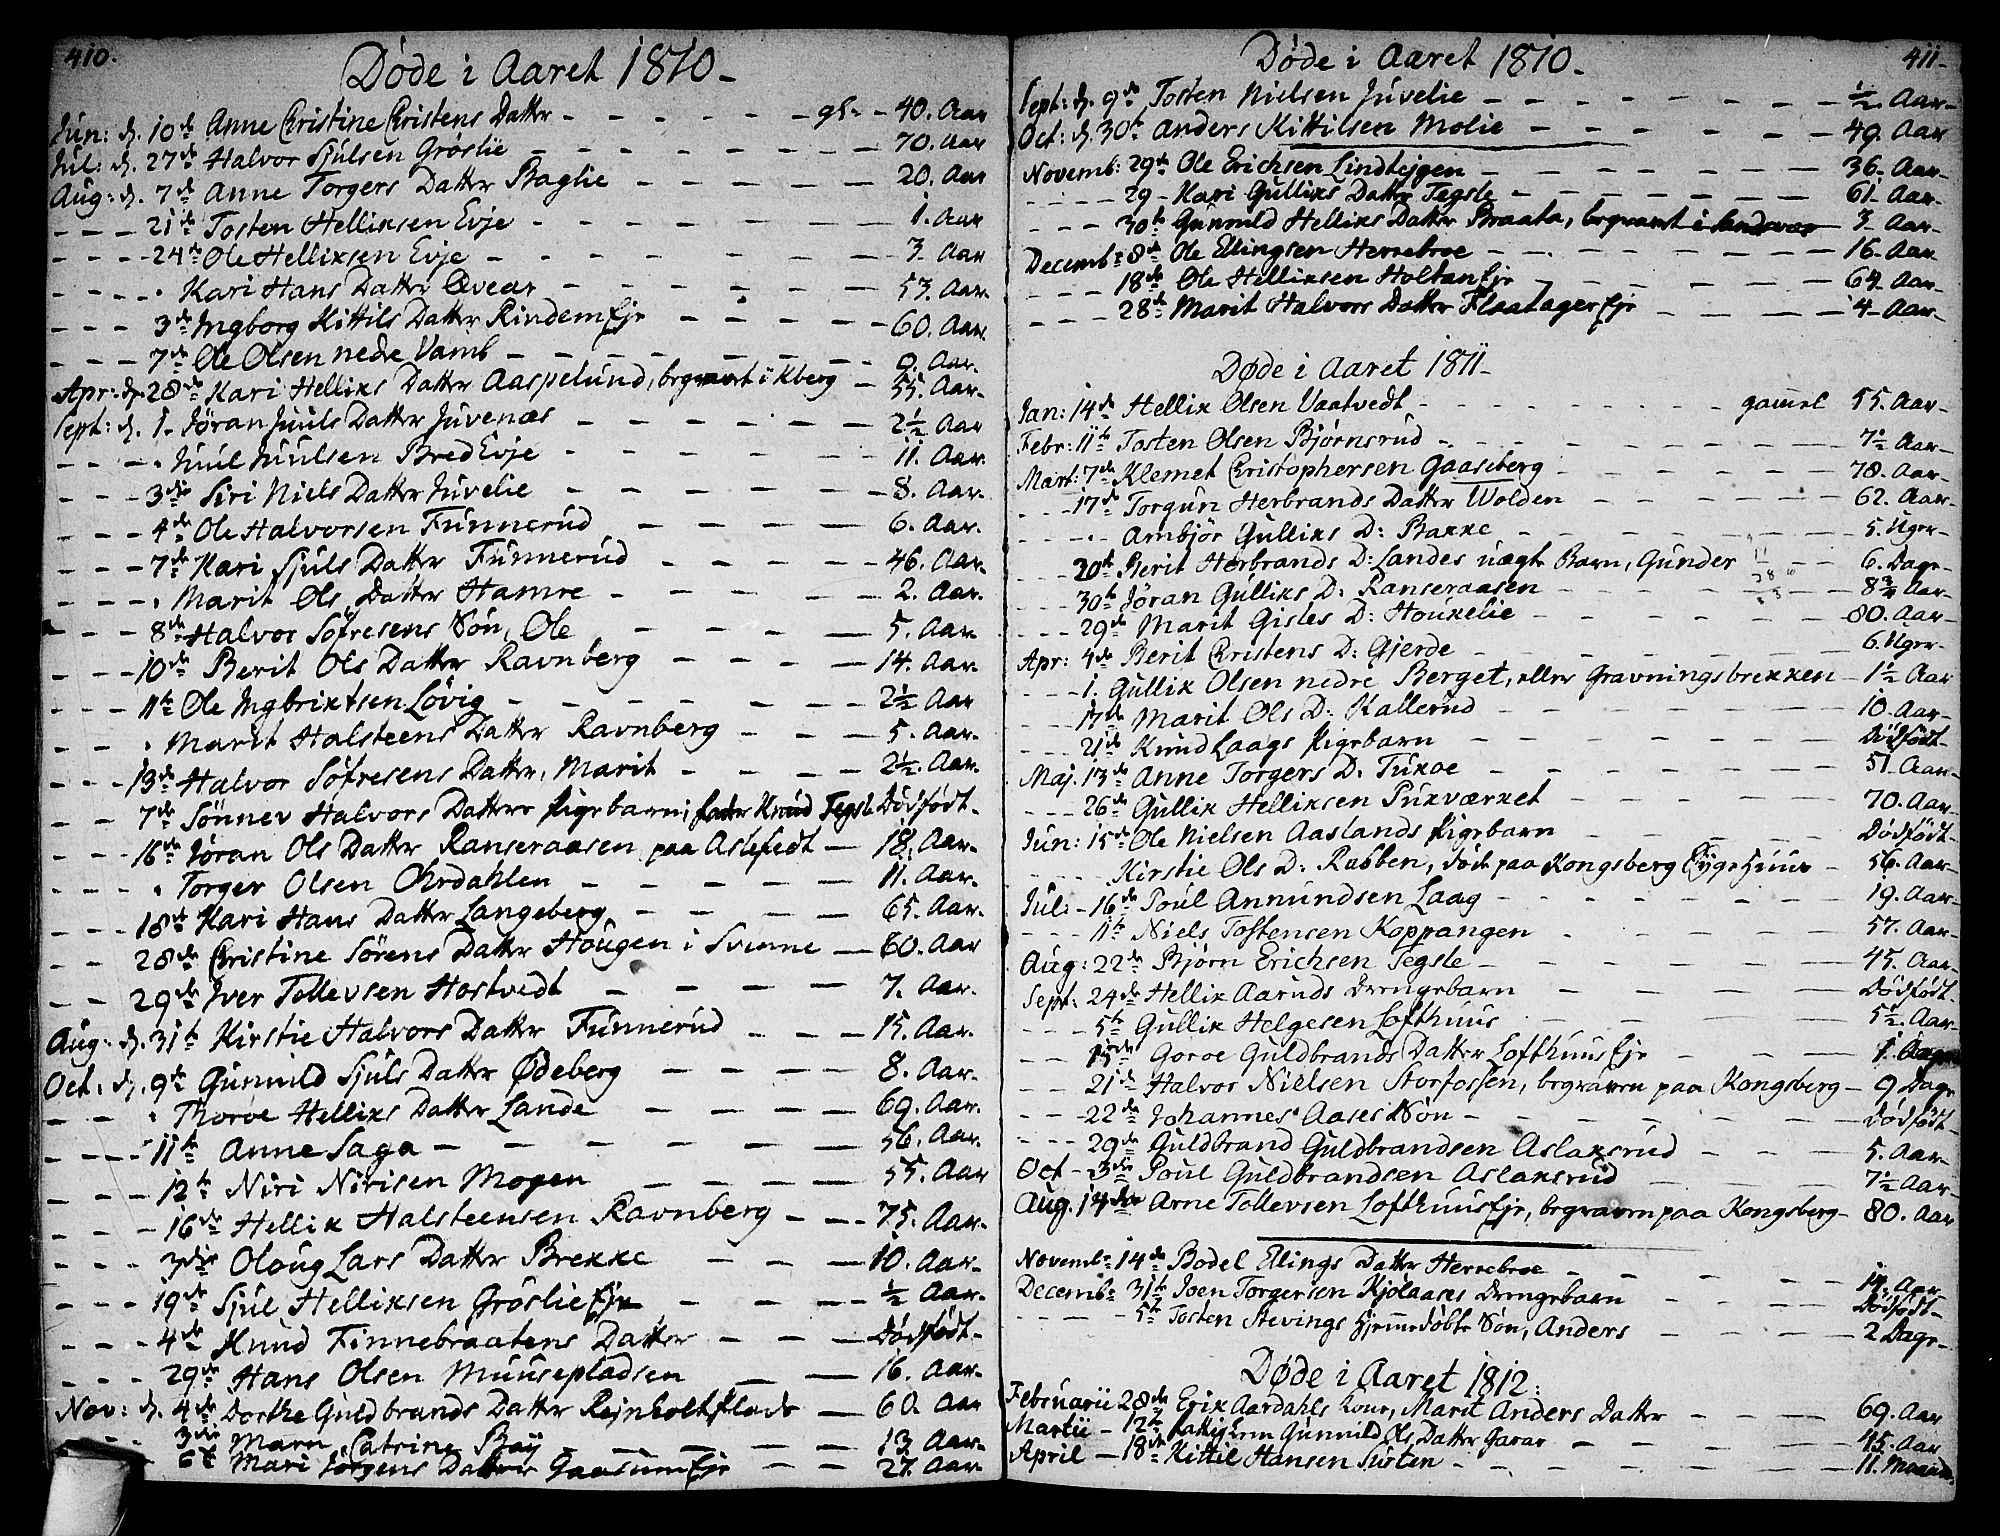 410.
Døde i Aaret 1810.
Jun: d. 10de Anne Christine Christens Datter - - - - - gl. - 40. Aar
Jul: d. 27de Halvor Sjulsen Grøslie - - - - - 70. Aar
Aug: d. 7de Anne Torgers Datter Baglie - - - - - 20. Aar
- - - 21de Tosten Helliksen Evje - - - - - 1. Aar
- - - 24de Ole Helliksen Evje - - - - - 3. Aar
- - - . Kari Hans Datter Qvear - - - - - 53. Aar.
- - - 3de Ingborg Kittils Datter Rindem Eje - - - - - 60. Aar.
- - - 7de Ole Olsen nedre Vamb - - - - - 9. Aar.
Apr: d. 28de Kari Helliks Datter Aaspelund, begravet i Kberg - 55. Aar.
Sept: d. 1. Jøran Juuls Datter Juvenæs - - - - - 2½ Aar
- - - . Juul Juulsen Bred Evje - - - - - 11. Aar.
- - - 3die Siri Niels Datter Juvelie - - - - - 8. Aar.
- - - 4de Ole Halvorsen Funnerud - - - - - 6. Aar.
- - - 7de Kari Sjuls Datter Funnerud - - - - - 46. Aar.
- - - . Marit Ols Datter Hamre - - - - - 2. Aar.
- - - 8de Halvor Søfresens Søn, Ole - - - - - 5. Aar.
- - - 10de Berit Ols Datter Ravnberg - - - - 14. Aar.
- - - 11te Ole Ingbriktsen Løvig - - - - - 2½ Aar
- - . Marit Halsteens Datter Ravnberg - - - - 5. Aar.
- - - 13de Halvor Søfresens Datter, Marit - - - - 2½. Aar.
- - - 7de Sønnev Halvors Datters Pigebarn; fader Knud Tegsl. Dødfødt.
- - - 16de Jøran Ols Datter Ranseraasen paa Aslefedt - 18. Aar.
- - - . Torger Olsen Ohrdahlen - - - - - 11. Aar.
- - - 18de Kari Hans Datter Langeberg - - - - 65. Aar.
- - 28de Christine Sørens Datter Hougen i Svenne - 60. Aar
- - 29de Iver Tollevsen Hostvedt - - - - 7. Aar.
Aug: d. 31te Kirstie Halvors Datter Funnerud - - - 15. Aar.
Oct: d. 9te Gunnild Sjuls Datter Ødeberg - - - - 8. Aar.
. Thoroe Helliks Datter Lande - - - - 69. Aar.
- - - 11te Anne Saga - - - - - 56. Aar.
- - - 12te Niri Nirisen Mogen - - - - 55. Aar
- - 16de Hellik Halsteensen Ravnberg - - - 75. Aar.
- - - 3die Oloug Lars Datter Brekke - - - 10. Aar.
- - - 19de Sjul Helliksen Grøslie Eje - - - - ½ Aar.
- - - 4de Knud Finnebraatens Datter - - - Dødfødt.
- - - 29de Hans Olsen Muusepladsen - - 16. Aar.
Nov: d. 4de Dorthe Guldbrands Datter Rejnholtflade - 60. Aar
3die Maren Catrine Bay - - - - 13 Aar.
- - 6te Mari Jørgens Datter Gaasum Eje - - 27. Aar
411.
Døde i Aaret 1810.
Sept: d. 9de Tosten Nielsen Juvelie - - - - - ½ Aar.
Oct: d. 30te Anders Kittilsen Molie - - - - - 49. Aar
Novemb: 29de Ole Erichsen Lindtejgen - - - - - 36. Aar.
- - - - 29 - Kari Gulliks Datter Tegsle - - - - - 61. Aar.
- - - 30te Gunnild Helliks Datter Braata, begravet i Sandsvær 3. Aar.
Decemb: 8de Ole Ellingsen Herrebroe - - - - - 16. Aar
- - - 18de Ole Helliksen Holtan Eje - - - - - 64. Aar.
- - - 28de Marit Halvors Datter Flaatager Eje - - - - 4. Aar.
Døde i Aaret 1811.
Jan: 14de Hellik Olsen Vaatvedt - - - - - gammel 55. Aar.
Febr: 11te Tosten Olsen Bjørnsrud - - - - - 7½ Aar.
Mart: 7de Klemet Christophersen Gaaseberg - - - - - 78. Aar.
- - - 17de Torgun Herbrands Datter Wolden - - - - 62. Aar.
- - - . Ambjør Gulliks D: Bakke - - - - - 5. Uger.
- - - 20de Berit Herbrands D: Landes uægte Barn, Gunder - - 6. Dage.
- - - 30te Jøran Gulliks D: Ranseraasen - - - - 8¾ Aar.
- - - 29de Marit Gisles D: Houkelie - - - - - 80. Aar.
Apr: 4de Berit Christens D: Gjerde - - - - - 6. Uger.
- - - 1. Gullik Olsen nedre Berget, eller Gravningsbrekken - 1½ Aar
- - - 17de Marit Ols D: Kallerud - - - - - 10. Aar.
- - - 21de Knud Laags Pigebarn - - - - - Dødfødt.
Maj. 13de Anne Torgers D. Tukoe - - - - - 51. Aar.
- - - 26de Gullik Helliksen Pukværket - - - - 70. Aar.
Jun: 15de Ole Nielsen Aaslands Pigebarn - - - - Dødfødt.
- - - - Kirstie Ols D: Rubben, død paa Kongsberg Sygehuus - 56. Aar.
Jul: - 16de Poul Amundsen Laag - - - - - 19. Aar.
- - - 11te Niels Tostensen Koppangen - - - - 57. Aar.
Aug: 22de Bjørn Erichsen Tegsle - - - - - 45. Aar.
Sept: 24de Hellik Aaruds Drengebarn - - - - Dødfødt.
- - - 5te Gullik Helgesen Lofthuus - - - - 5½. Aar.
- - - 15de Goroe Guldbrands Datter Lofthuus Eje - - - 1.
- - 21de Halvor Nielsen Storfossen, begraven paa Kongsberg - 9 Dage
- - - 22de Johannes Aases Søn - - - - - Dødfødt.
- - - 29de Guldbrand Guldbrandsen Aslaksrud - - - 5. Aar.
Oct - 3die Poul Guldbrandsen Aslaksrud - - - 7½ Aar.
Aug. 14de Arne Tollevsen Lofthuus Eje, begraven paa Kongsberg - 80. Aar
Novemb: 14de Bodel Ellings Datter Herrebroe - - - - 14. Aar.
Decemb: 31te Joen Torgersen Kjølaases Drengebarn - - - Dødfødt.
- - - - 5te Tosten Stevings hjemmedøbte Søn, Anders - - - 2 Dage.
Døde i Aaret 1812.
Februarii 28de Erik Aardahls Kone, Marit Anders Datter - - - 69. Aar
Martii - 12te Gunnild Ols Datter Garaas - - - 45. Aar
April - 18de Kittil Hansen Susten - - - - - 11. Maan.